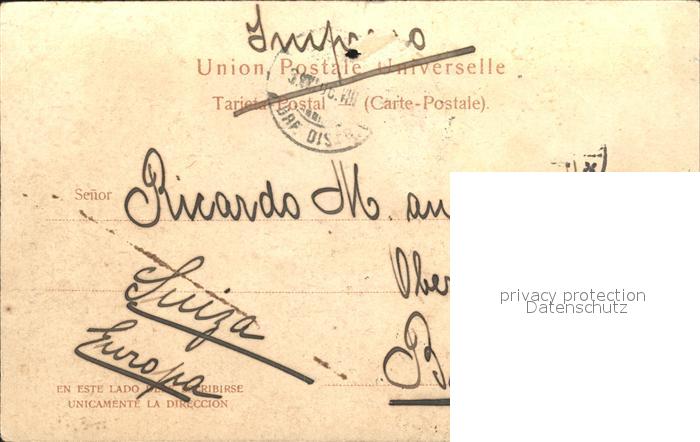 Impreso
Union Postale Universelle
Tarjeta Postal (Carte-Postale).
Señor Ricardo M.
Suiza
Europa
EN ESTE LADO DEBE ESCRIBIRSE
UNICAMENTE LA DIRECCION
privacy protection
Datenschutz